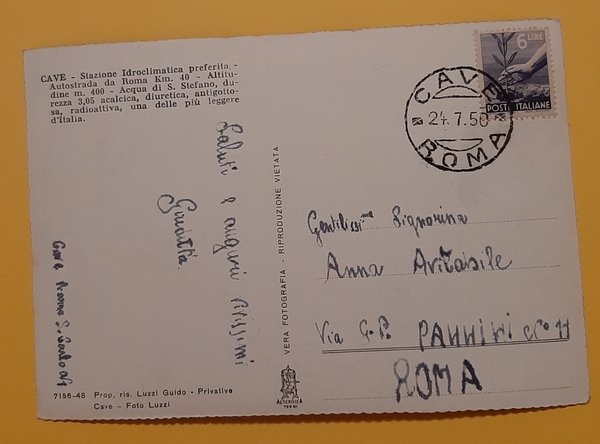 CAVE - Stazione Idroclimatica preferita. -
Autostrada da Roma Km. 40 - Altitu-
dine m. 400 - Acqua di S. Stefano, du-
rezza 3,05 acalcica, diuretica, antigotto-
sa, radioattiva, una delle più leggere
d'Italia.
6 LIRE
POSTE ITALIANE
CAVE
24.7.50
ROMA
Saluti e auguri
Giuditta
Gentilissima Signorina
Anna Avitabile
Via G.P. PANNINI N° 11
ROMA
Cave Roma S. Carlo
VERA FOTOGRAFIA - RIPRODUZIONE VIETATA
7156-48 Prop. ris. Luzzi Guido - Privativa
Cave - Foto Luzzi
ALTEROCCA
TERNI